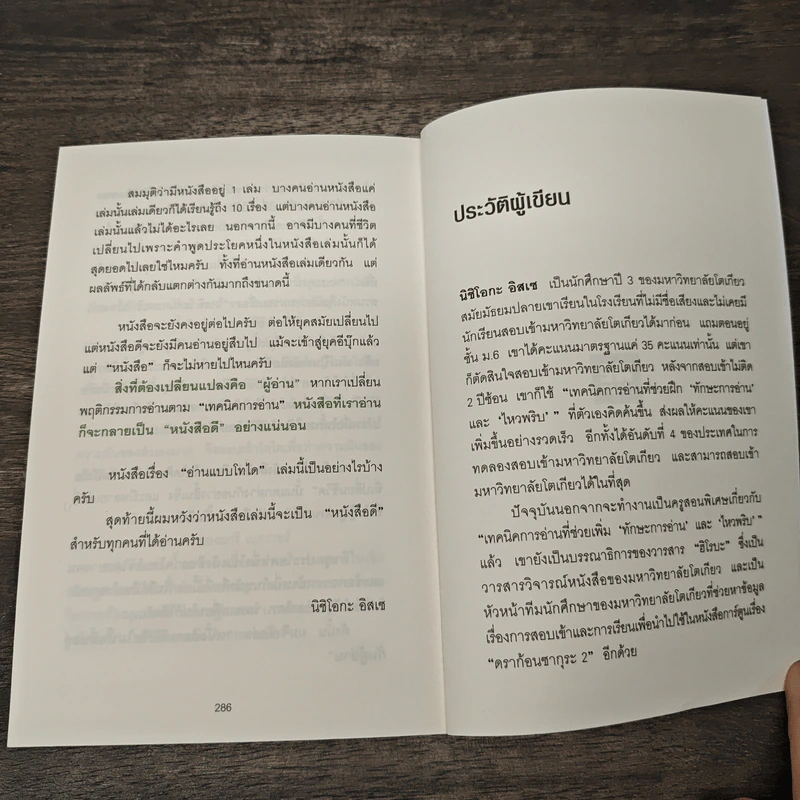 สมมุติว่ามีหนังสืออยู่ 1 เล่ม บางคนอ่านหนังสือแค่
เล่มนั้นเล่มเดียวก็ได้เรียนรู้ถึง 10 เรื่อง แต่บางคนอ่านหนังสือ
เล่มนั้นแล้วไม่ได้อะไรเลย นอกจากนี้ อาจมีบางคนที่ชีวิต
เปลี่ยนไปเพราะคำพูดประโยคหนึ่งในหนังสือเล่มนั้นก็ได้
สุดยอดไปเลยใช่ไหมครับ ทั้งที่อ่านหนังสือเล่มเดียวกัน แต่
ผลลัพธ์ที่ได้กลับแตกต่างกันมากถึงขนาดนี้
หนังสือจะยังคงอยู่ต่อไปครับ ต่อให้ยุคสมัยเปลี่ยนไป
แต่หนังสือดีจะยังมีคนอ่านอยู่สืบไป แม้จะเข้าสู่ยุคอีบุ๊กแล้ว
แต่ "หนังสือ" ก็จะไม่หายไปไหนครับ
สิ่งที่ต้องเปลี่ยนแปลงคือ "ผู้อ่าน" หากเราเปลี่ยน
พฤติกรรมการอ่านตาม "เทคนิคการอ่าน" หนังสือที่เราอ่าน
ก็จะกลายเป็น "หนังสือดี" อย่างแน่นอน
หนังสือเรื่อง "อ่านแบบโทได" เล่มนี้เป็นอย่างไรบ้าง
ครับ
สุดท้ายนี้ผมหวังว่าหนังสือเล่มนี้จะเป็น "หนังสือดี"
สำหรับทุกคนที่ได้อ่านครับ
นิชิโอกะ อิสเซ
286
ประวัติผู้เขียน
นิชิโอกะ อิสเซ เป็นนักศึกษาปี 3 ของมหาวิทยาลัยโตเกียว
สมัยมัธยมปลายเขาเรียนในโรงเรียนที่ไม่มีชื่อเสียงและไม่เคยมี
นักเรียนสอบเข้ามหาวิทยาลัยโตเกียวได้มาก่อน แถมตอนอยู่
ชั้น ม.6 เขาได้คะแนนมาตรฐานแค่ 35 คะแนนเท่านั้น แต่เขา
ก็ตัดสินใจสอบเข้ามหาวิทยาลัยโตเกียว หลังจากสอบเข้าไม่ติด
2 ปีซ้อน เขาก็ใช้ "เทคนิคการอ่านที่ช่วยฝึก 'ทักษะการอ่าน'
และ 'ไหวพริบ'" ที่ตัวเองคิดค้นขึ้น ส่งผลให้คะแนนของเขา
เพิ่มขึ้นอย่างรวดเร็ว อีกทั้งได้อันดับที่ 4 ของประเทศในการ
ทดลองสอบเข้ามหาวิทยาลัยโตเกียว และสามารถสอบเข้า
มหาวิทยาลัยโตเกียวได้ในที่สุด
ปัจจุบันนอกจากจะทำงานเป็นครูสอนพิเศษเกี่ยวกับ
"เทคนิคการอ่านที่ช่วยเพิ่ม 'ทักษะการอ่าน' และ 'ไหวพริบ'"
แล้ว เขายังเป็นบรรณาธิการของวารสาร "ฮิโรบะ" ซึ่งเป็น
วารสารวิจารณ์หนังสือของมหาวิทยาลัยโตเกียว และเป็น
หัวหน้าทีมนักศึกษาของมหาวิทยาลัยโตเกียวที่ช่วยหาข้อมูล
เรื่องการสอบเข้าและการเรียนเพื่อนำไปใช้ในหนังสือการ์ตูนเรื่อง
"ดราก้อนซากุระ 2" อีกด้วย